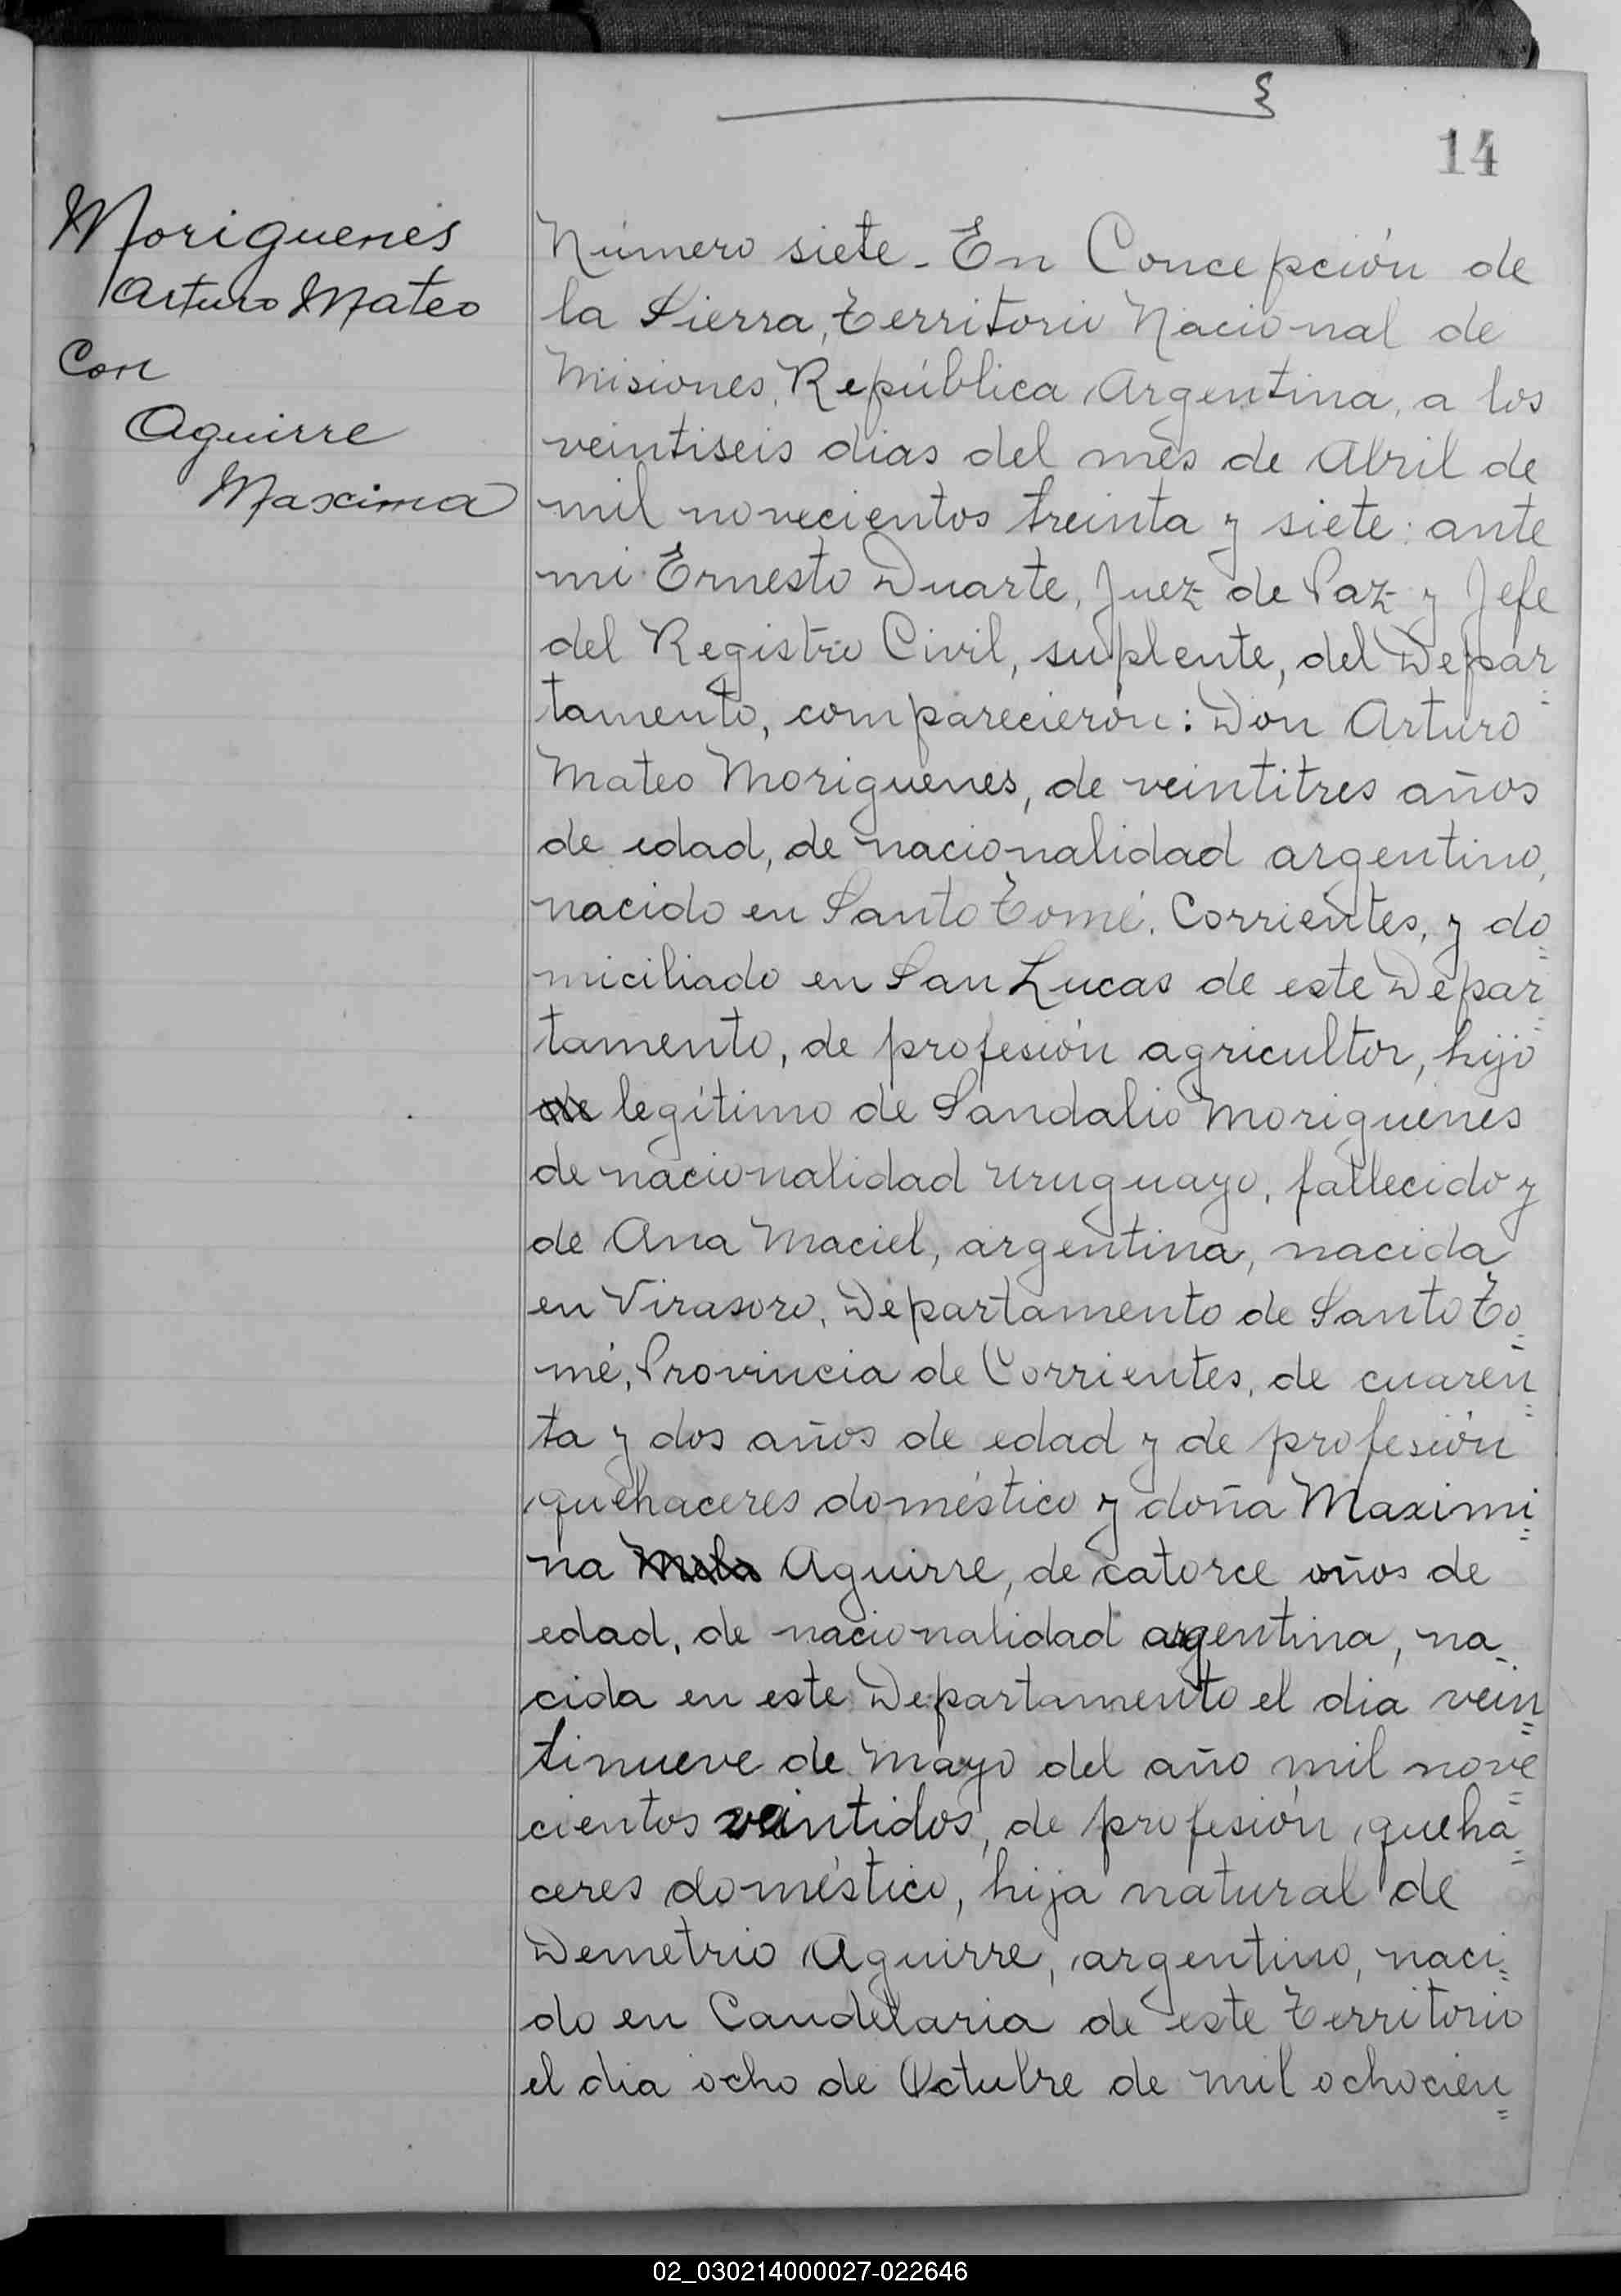 14
Moriguenes
Arturo Mateo
Con
Aguirre
Maxima
Número siete - En Concepción de
la Sierra, Territorio Nacional de
Misiones, República Argentina, a los
veintiseis dias del mes de Abril de
mil novecientos treinta y siete: ante
mi Ernesto Duarte, Juez de Paz y Jefe
del Registro Civil, suplente, del Depar=
tamento, comparecierón: Don Arturo
Mateo Moriguenes, de veintitres años
de edad, de nacionalidad argentino,
nacido en Santo Tomé, Corrientes, y do=
miciliado en San Lucas de este Depar=
tamento, de profesión agricultor, hijo
de legítimo de Sandalio Moriguenes
de nacionalidad uruguayo, fallecido y
de Ana Maciel, argentina, nacida
en Virasoro, Departamento de Santo To=
mé, Provincia de Corrientes, de cuaren=
ta y dos años de edad y de profesión
quehaceres doméstico y doña Maximi=
na Aguirre, de catorce años de
edad, de nacionalidad argentina, na-
cida en este Departamento el dia vein=
tinueve de Mayo del año mil nove=
cientos veintidos, de profesión queha=
ceres doméstico, hija natural de
Demetrio Aguirre, argentino, naci=
do en Candelaria de este Territorio
el dia ocho de Octubre de mil ochocien=
02_030214000027-022646